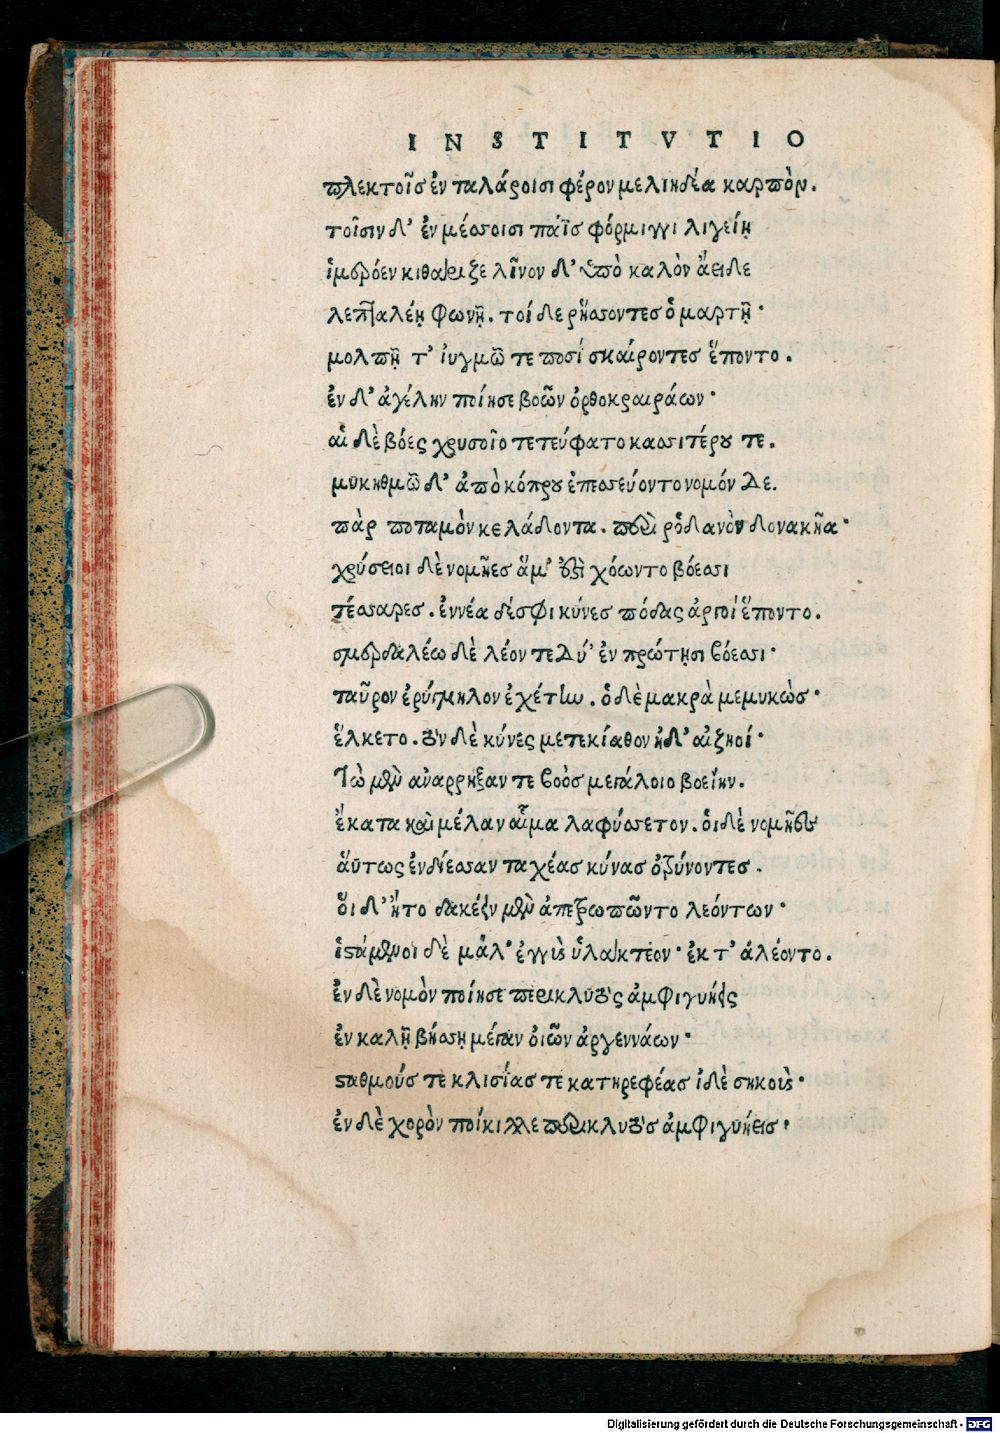 INSTITVTIO
πλεκτοῖσ ἐν ταλάροισι φέρον μελιηδέα καρπὸν.
τοῖσιν δ' ἐν μέσσοισι πάϊσ φόρμιγγι λιγείῃ
ἱμερόεν κιθάριζε λῖνον δ' ὑπὸ καλὸν ἄειδε
λεπταλέῃ φωνῇ. τοί δε ῥήσσοντεσ ὁμαρτῇ·
μολπῇ τ' ἰυγμῶ τε ποσί σκαίροντεσ ἕποντο.
ἐν δ' ἀγέλην ποίησε βοῶν ὀρθοκραιράων·
αἱ δὲ βόες χρυσοῖο τετεύφατο κασσιτέρου τε.
μυκηθμῶ δ' ἀπὸ κόπρου ἐπεσσεύοντο νομόν Δε.
πὰρ ποταμὸν κελάδοντα. περὶ ῥοδανὸν δονακῆα·
χρύσειοι δὲ νομῆεσ ἅμ' ἐστιχόωντο βόεσσι
τέσσαρεσ. ἐννέα δέσφι κύνεσ πόδας ἀργοὶ ἕποντο.
σμερδαλέω δὲ λέοντε Δύ' ἐν πρώτῃσι βόεσσι·
ταῦρον ἐρύγμηλον ἐχέτην. ὁ δὲ μακρὰ μεμυκὼσ·
ἕλκετο. τὸν δὲ κύνες μετεκίαθον ἠδ' αἰζηοί·
Τὼ μὲν ἀναρρηξαν τε βοὸσ μεγάλοιο βοείην.
ἔκατα καὶ μέλαν αἷμα λαφύσσετον. ὁι δὲ νομῆες
ἅυτως ἐνδίεσαν ταχέας κύνασ ὀτρύνοντεσ.
ὅι δ' ἤτο δακέειν μὲν ἀπετρωπῶντο λεόντων·
ἱστάμενοι δὲ μάλ' ἐγγὺσ ὑλάκτεον· ἐκ τ' ἀλέοντο.
ἐν δὲ νομὸν ποίησε περικλυτὸς ἀμφιγυήεις
ἐν καλῇ βήσσῃ μέγαν ὀιῶν ἀργεννάων·
σταθμούς τε κλισίας τε κατηρεφέας ἰδὲ σηκοὺσ·
ἐν δὲ χορὸν ποίκιλλε περικλυτὸσ ἀμφιγυήεισ·
Digitalisierung gefördert durch die Deutsche Forschungsgemeinschaft - DFG